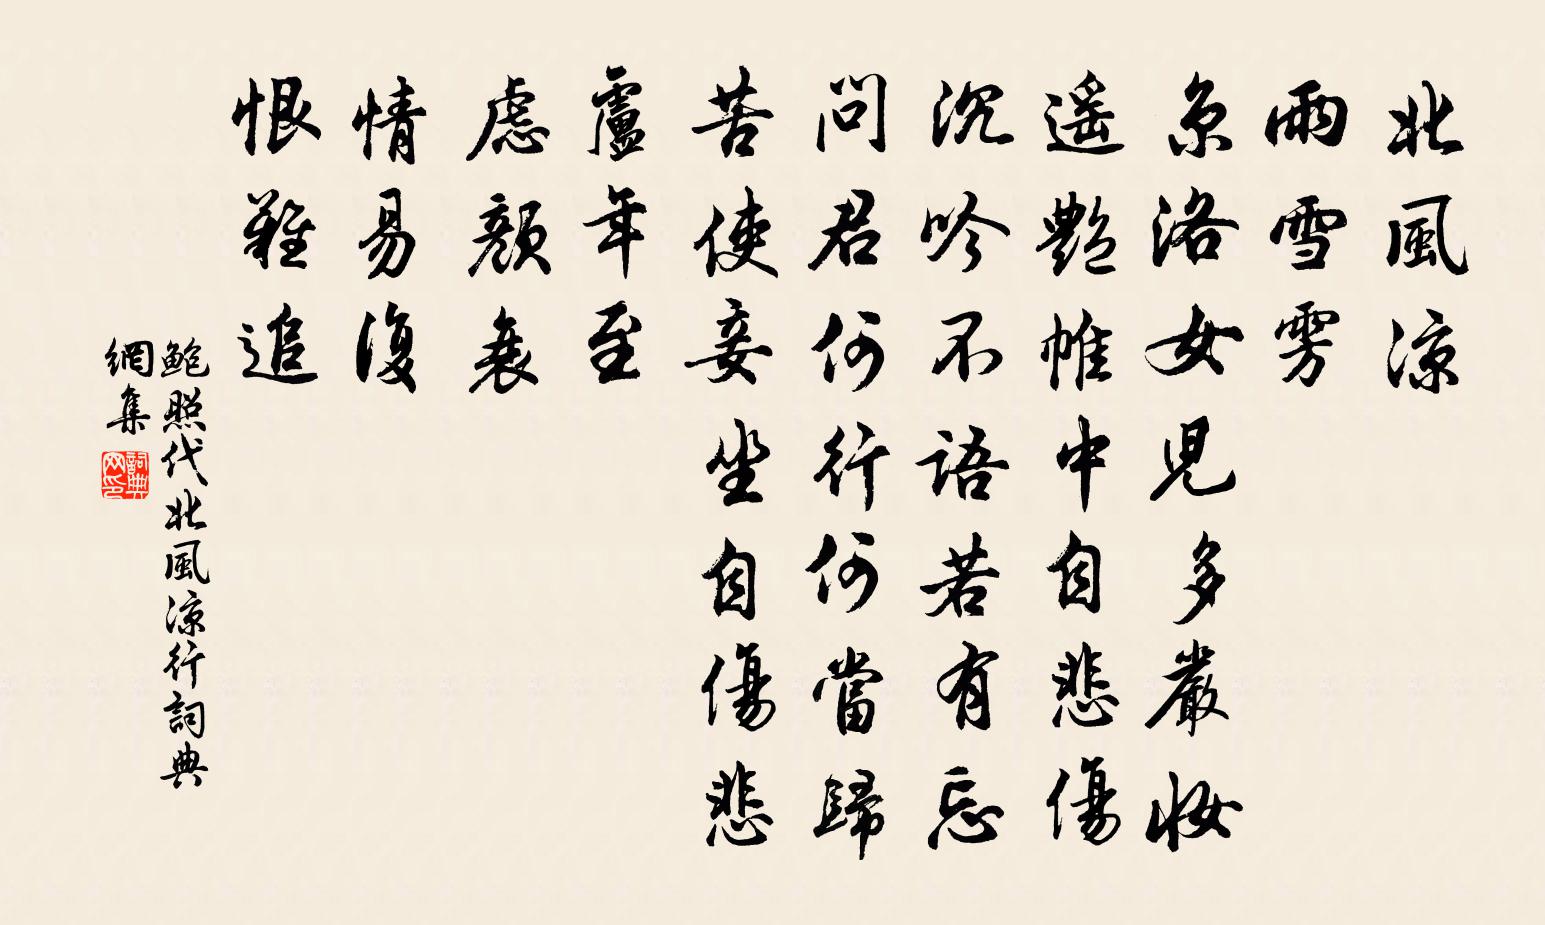 北風凉
雨雪雱
京洛女兒多嚴妝
遥艷帷中自悲傷
沉吟不語若有忘
問君何行何當歸
苦使妾坐自傷悲
慮年至
慮顏衰
情易復
恨難追
鮑照代北風凉行詞典
網集
詞典
网印